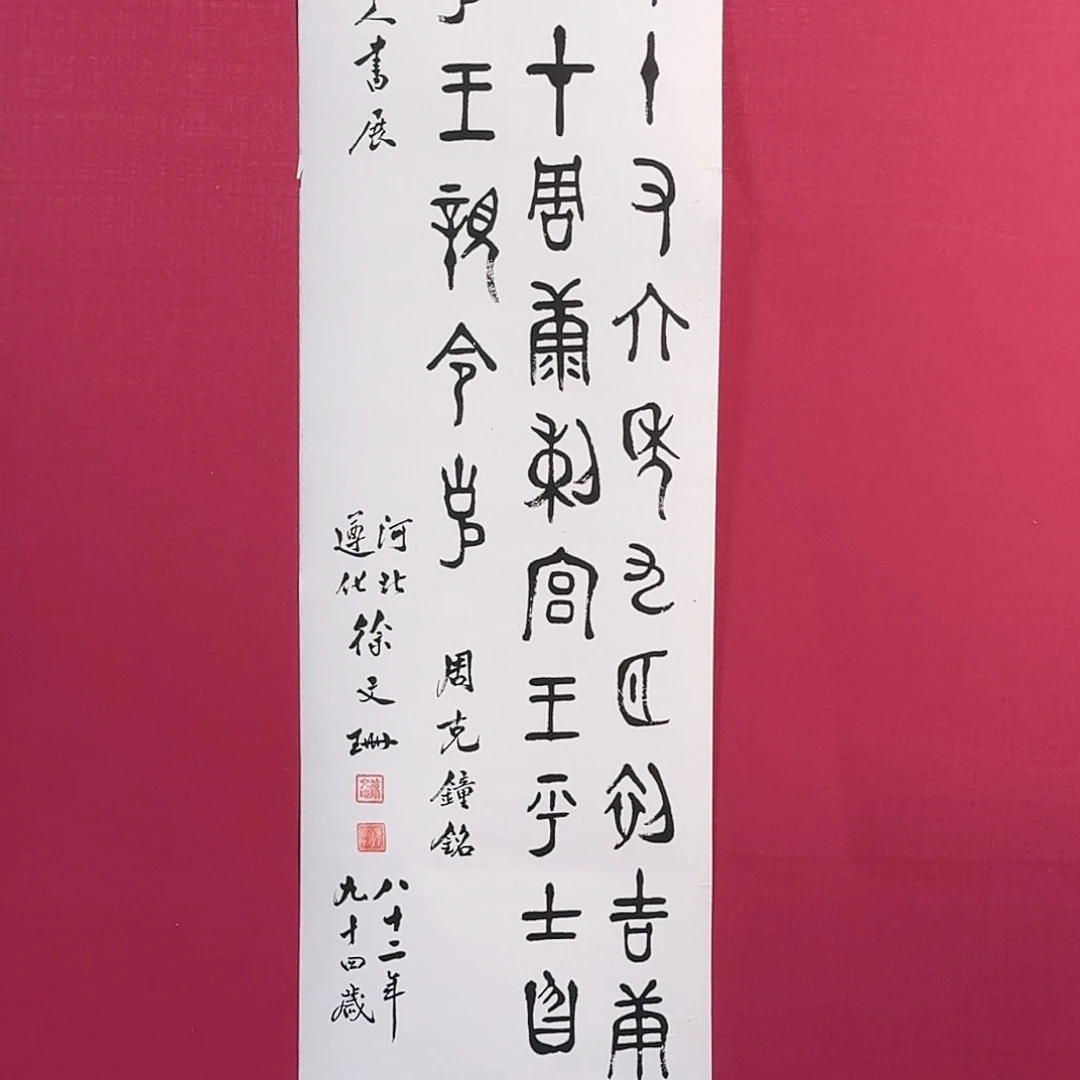 十又六年九月初吉庚
才周康剌宮王乎士曶
王親令克 周克鐘銘
人書展
河北
遵化
徐文珊
八十二年
九十四歲